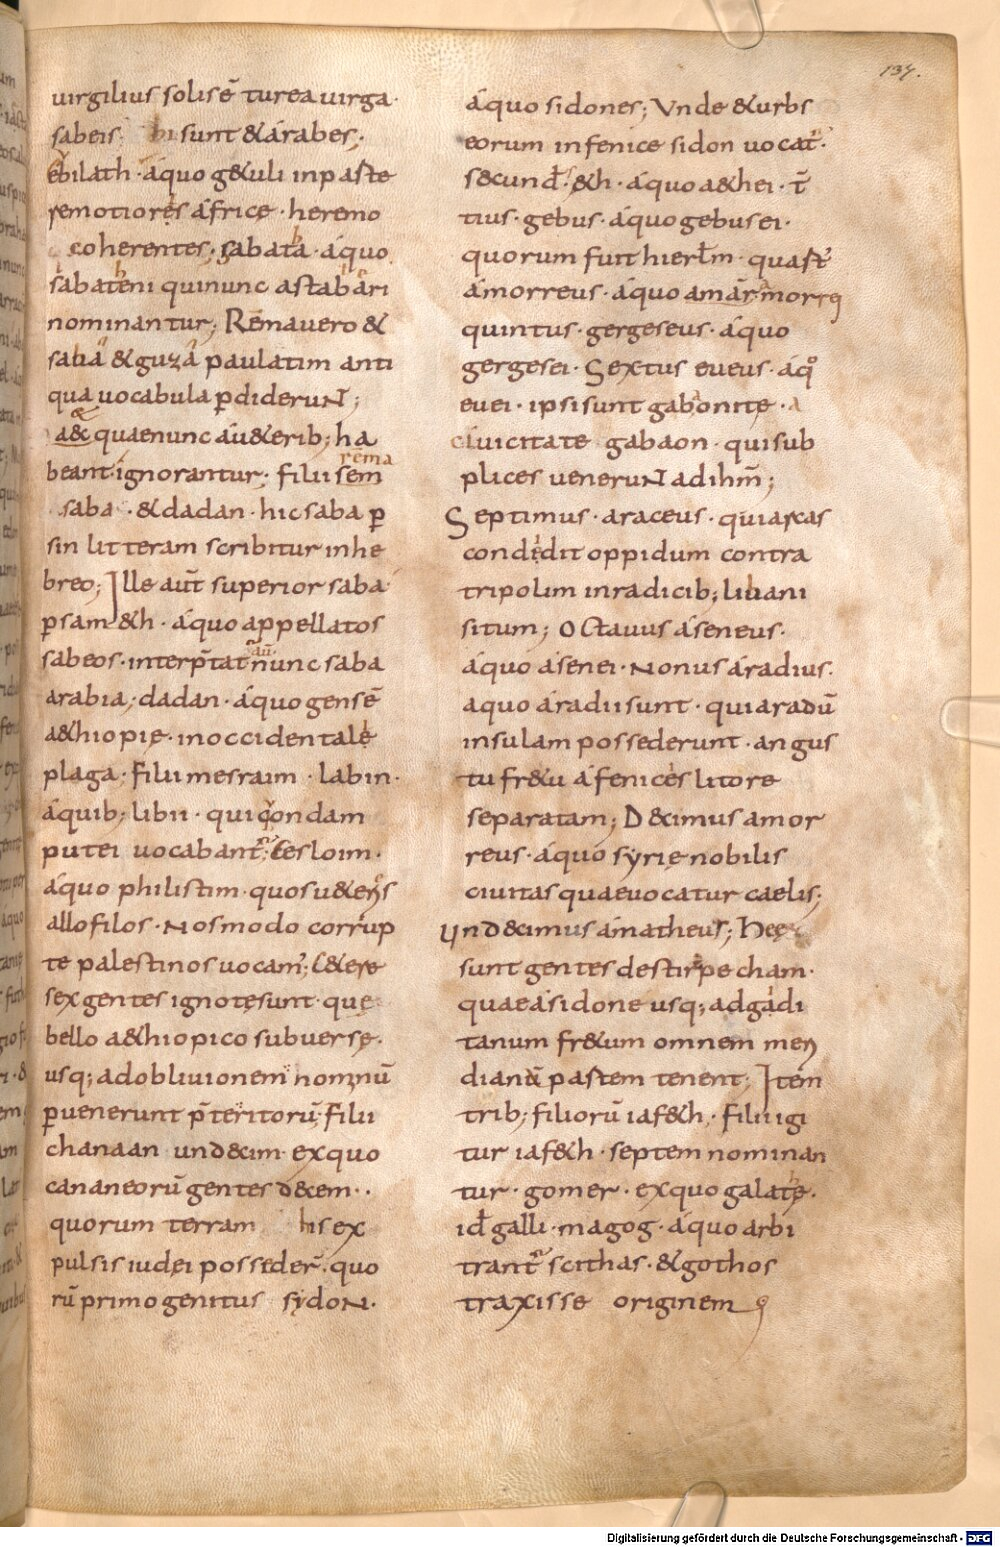 137.
uirgilius solis ē turea uirga·
sabeis hi sunt & árabes;·
ebilath· áquo g&uli in paste
remotiores áfrice· heremo
coherentes; sabata· áquo
sabateni qui nunc astabari
nominantur; Rema uero &
saba & guza paulatim anti
qua uocabula ꝑdiderunt;
a& quae nunc áu& erib; ha
beant ignorantur· filii sem rema
saba· & dadan· hic saba ꝑ
sin litteram scribitur in he
breo; Ille aut̄ superior saba
ꝑ sam&h· áquo appellatos
sabeos· interp̄tat̄ aū nunc saba
arabia; dadan· áquo gens ē
a&hiopię· in occidentale
plaga· filii mesraim· labin·
áquib; libii· qui condam
putei uocabant̄; cesloim·
áquo philistim· quos u&eres
allofilos· Nos modo corrup
te palestinos uocam'; C&erę
sex gentes ignotę sunt· quę
bello a&hiopico subuersę·
usq; ad obliuionem nominū
ꝑuenerunt p̄teritorū; filii
chanaan undecim· ex quo
cananeorū gentes decem··
quorum terram his ex
pulsis iudei posseder̄· quo
rū primogenitus sydon·
áquo sidones; Vnde & urbs
eorum in fenice sidon uocat̄·
secund̄· &h· áquo a&hei· t̄
tius· gebus· áquo gebusei·
quorum fuit hierl̄m· quart'
ámorreus· áquo amár morrei
quintus· gergeseus· áquo
gergesei· Sextus eueus· áqo
euei· ipsi sunt gabonitę·
á ciuicitate gabaon· qui sub
plices uenerunt ad ihm̄;
Septimus· araceus· qui arcas
condidit oppidum contra
tripolim in radicib; libani
situm; Octauus áseneus·
áquo ásenei· Nonus áradius·
aquo áradii sunt· qui aradū
insulam possederunt· angus
tu fr&u áfenices litore
separatam; Decimus amor
reus· áquo syrię nobilis
ciuitas quae uocatur caelis;
undecimus ámatheus; Hee
sunt gentes de stirpe cham·
quae ásidone usq; ad gadi
tanum fr&um omnem meri
dianū pastem tenent; Item
trib; filiorū iaf&h· filii igi
tur iaf&h· septem nominan
tur· gomer· ex quo galatę·
id̄ galli· magog· áquo arbi
trant̄ scithas· & gothos
traxisse originem
Digitalisierung gefördert durch die Deutsche Forschungsgemeinschaft - DFG